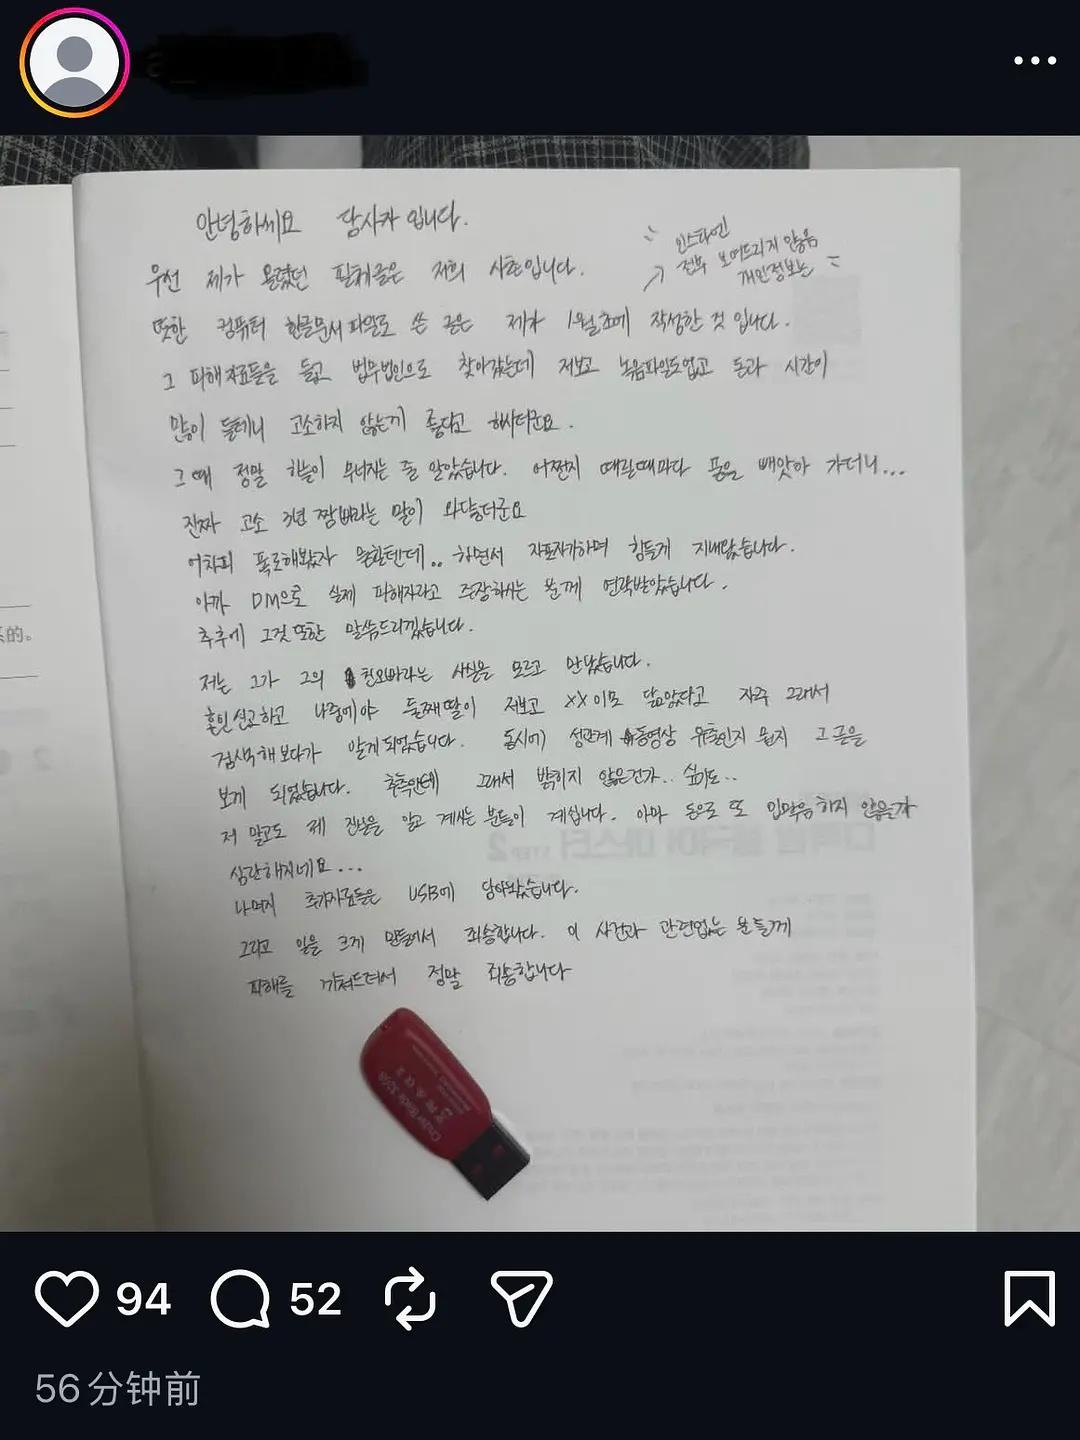 안녕하세요 당사자 입니다.
우선 제가 올렸던 필체글은 저희 사촌입니다.
인스타엔
전부 보여드리지 않음
개인정보는
또한 컴퓨터 한글문서 파일로 쓴 글은 제가 1월초에 작성한 것 입니다.
그 피해자료들을 들고 법무법인으로 찾아갔는데 저보고 녹음파일도없고 돈과 시간이
많이 들테니 고소하지 않는게 좋다고 하시더군요.
그때 정말 하늘이 무너지는 줄 알았습니다. 어쩐지 때릴때마다 폰을 빼앗아 가더니...
진짜 고소 3년 짬빠라는 말이 와닿더군요
어차피 폭로해봤자 못할텐데.. 하면서 자포자기하며 힘들게 지내왔습니다.
아까 DM으로 실제 피해자라고 주장하시는 분께 연락받았습니다.
추후에 그것 또한 말씀드리겠습니다.
저는 그가 그의 친오빠라는 사실을 모르고 만났습니다.
혼인신고하고 나중에야 둘째딸이 저보고 XX이모 닮았다고 자주 그래서
검색해보다가 알게되었습니다. 동시에 성관계 동영상 유출인지 뭔지 그 글을
보게 되었습니다. 추측안데 그래서 밝히지 않은건가.. 싶기도..
저 말고도 제 진실을 알고 계시는 분들이 계십니다. 아마 돈으로 또 입막음 하지 않을까
심란해지네요...
나머지 추가자료들은 USB에 담아왔습니다.
그리고 일을 크게 만들어서 죄송합니다. 이 사건과 관련없는 분들께
피해를 끼쳐드려서 정말 죄송합니다
系的。
Cruzer Blade 32GB
94
52
56分钟前